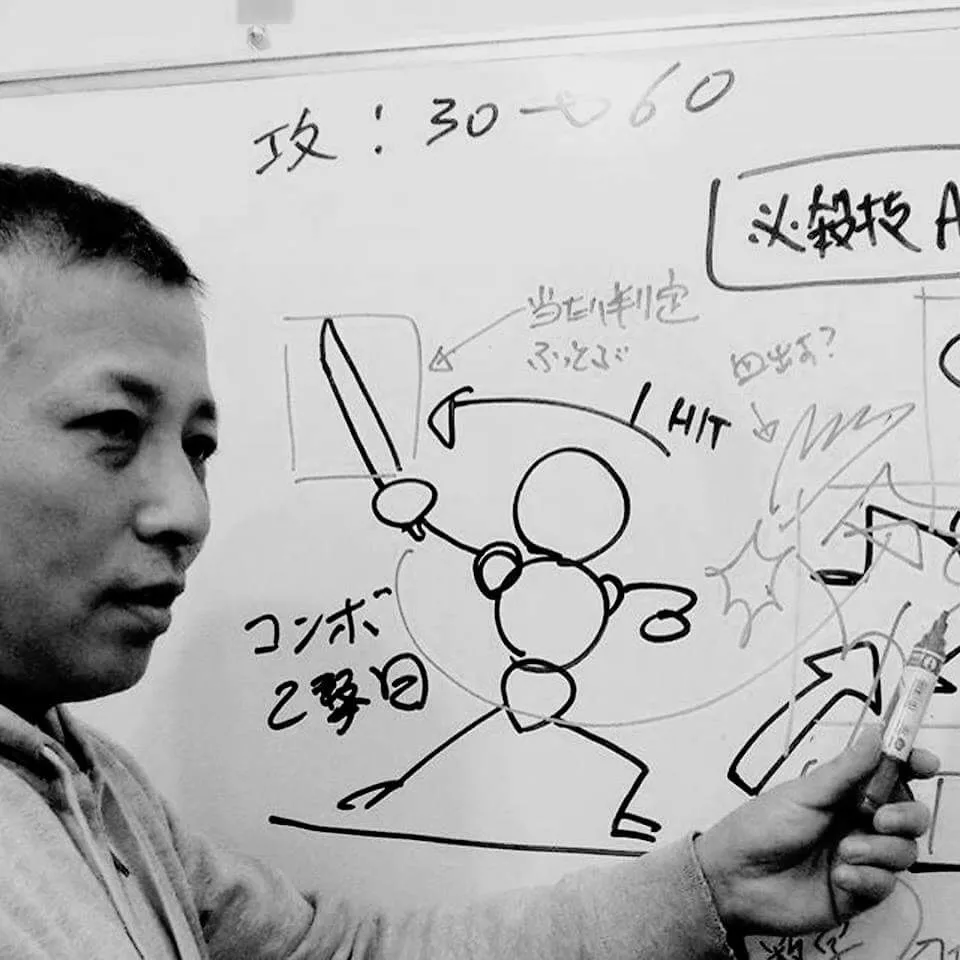 攻：30→60
必殺技 A
当たり判定
ふっとぶ
血出す？
HIT
コンボ
2撃目